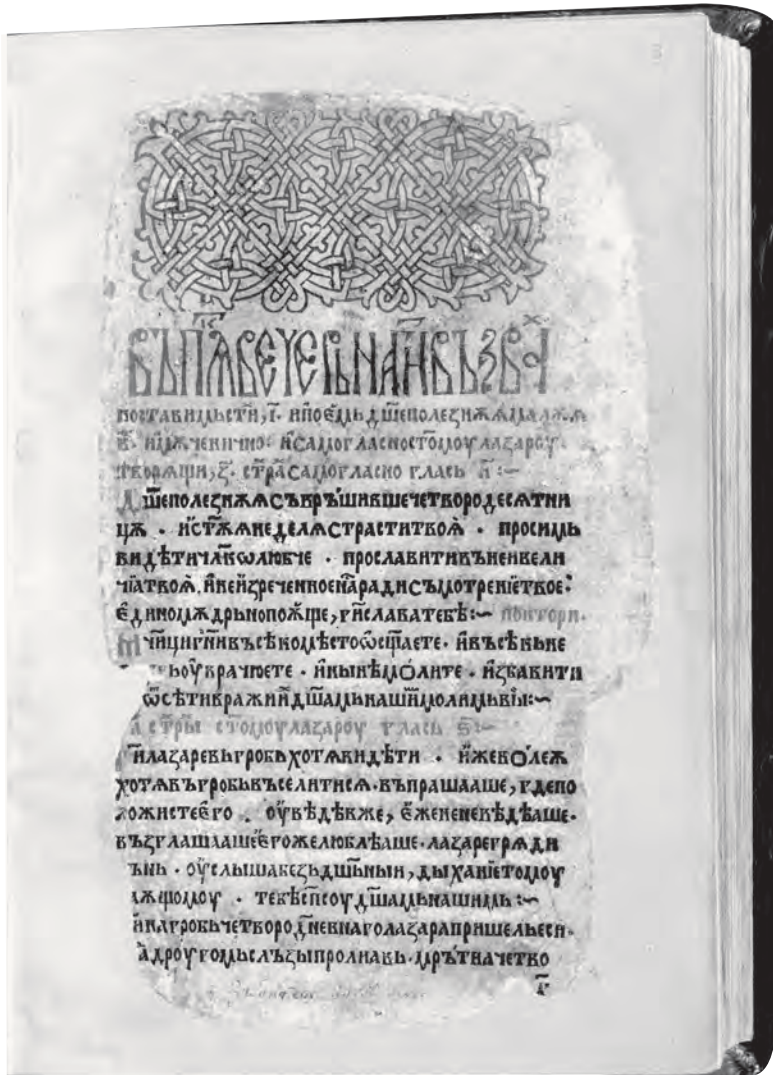 ВЪПѦВЕЧЕРЬНАГИВЪЗВА
поставимьсти, і. ипоемьдш͠еполезнꙋѫ
въ. имѫченично: исамогласностомоулазароу.
творѧщи, ꙁ. ст͠расамогласно гласъ и҃:~
Дш͠еполеꙁнѫѫсъврьшившечетвородесѧтни
цѫ · ист͠ѫѫнедѣлѧстраститвоѧ̀ · просимь
видѣтичл͠кѡлюбче · прославитивънеивели
чїатвоѧ̀, инеиꙁреченноенасрадисъмотренїетвое:
единомѫдрьнопоѫще, ги͠славатебѣ:~ повтори.
чн͠цигн͠ивъсѣкомѣстоѡсщ͠аете· ивъсѣкыне
ьоу҆врачюете · инынѣмолите · иꙁбавити
ѿсѣтивражиидш͠амьнашимолимьвы:~
ст͠ры ст͠омоулаꙁароу гласъ ѕ҃:~
илаꙁаревьгробьхотѧвидѣти · ижеволеѫ
хотѧвъгробьвъселитисѧ·въпрашааше, гдепо
ложистеего . оу҆вѣдѣвже, ежененевѣдѣаше·
въꙁглашаашеегожелюблѣаше·лаꙁарегрѧди
ънь · оу҆слышабеꙁьдш͠ьныи, дыханїетомоу
ѫщомоу · тебѣсп͠соудш͠амьнашимь:~
инагробьчетвород͠невнаголаꙁарапришельеси·
адроугомьслъꙁыпролиавь·мрътвачетво
г҃